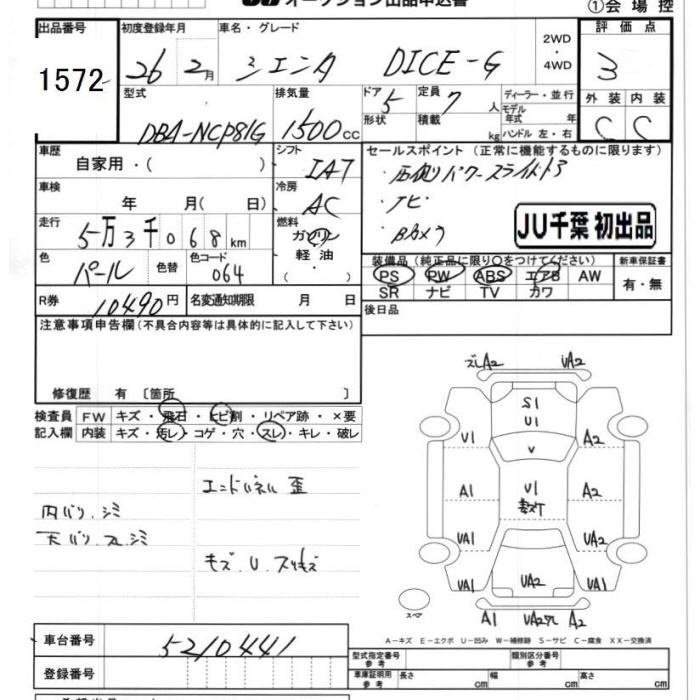 JU オークション出品申込書
①会場控
出品番号 初度登録年月 車名・グレード 2WD・4WD 評価点
1572 26 2月 シエンタ DICE-G 3
型式 排気量 ドア 定員 ディーラー・並行 外装 内装
DBA-NCP81G 1500cc 5 7人 モデル年式 年式
形状 積載 kg ハンドル 左・右 C C
車歴 シフト セールスポイント (正常に機能するものに限ります)
自家用・( ) IAT ・右側パワースライドドア
車検 冷房 ・ナビ
年 月( 日) AC ・Bカメラ
走行 燃料 JU千葉 初出品
5万3千068km ガソリン
軽油
・( )
色 色替 色コード
パール 064
装備品 (純正品に限り○をつけてください) 新車保証書
PS PW ABS エアB AW 有・無
SR ナビ TV カワ
R券 10490円 名変通知期限 月 日 後日品
注意事項申告欄(不具合内容等は具体的に記入して下さい)
修復歴 有 〔箇所 〕
検査員 FW キズ・飛石・ヒビ割・リペア跡・×要
記入欄 内装 キズ・汚レ・コゲ・穴・スレ・キレ・破レ
エンドパネル歪
内バリ、シミ
天バリ、スレ、シミ
キズ、U、スリキズ
ズレA2 UA2
S1
U1
U1 V A2
A1 U1 A2
UA1 UA2
UA1 UA2 UA1
スペア
A1 UA2ズレ A2
A-キズ E-エクボ U-凹み W-補修跡 S-サビ C-腐食 XX-交換済
車台番号 5210441
型式指定番号 参考 類別区分番号 参考
登録番号
車庫証明用 参考 長さ cm 幅 cm 高さ cm